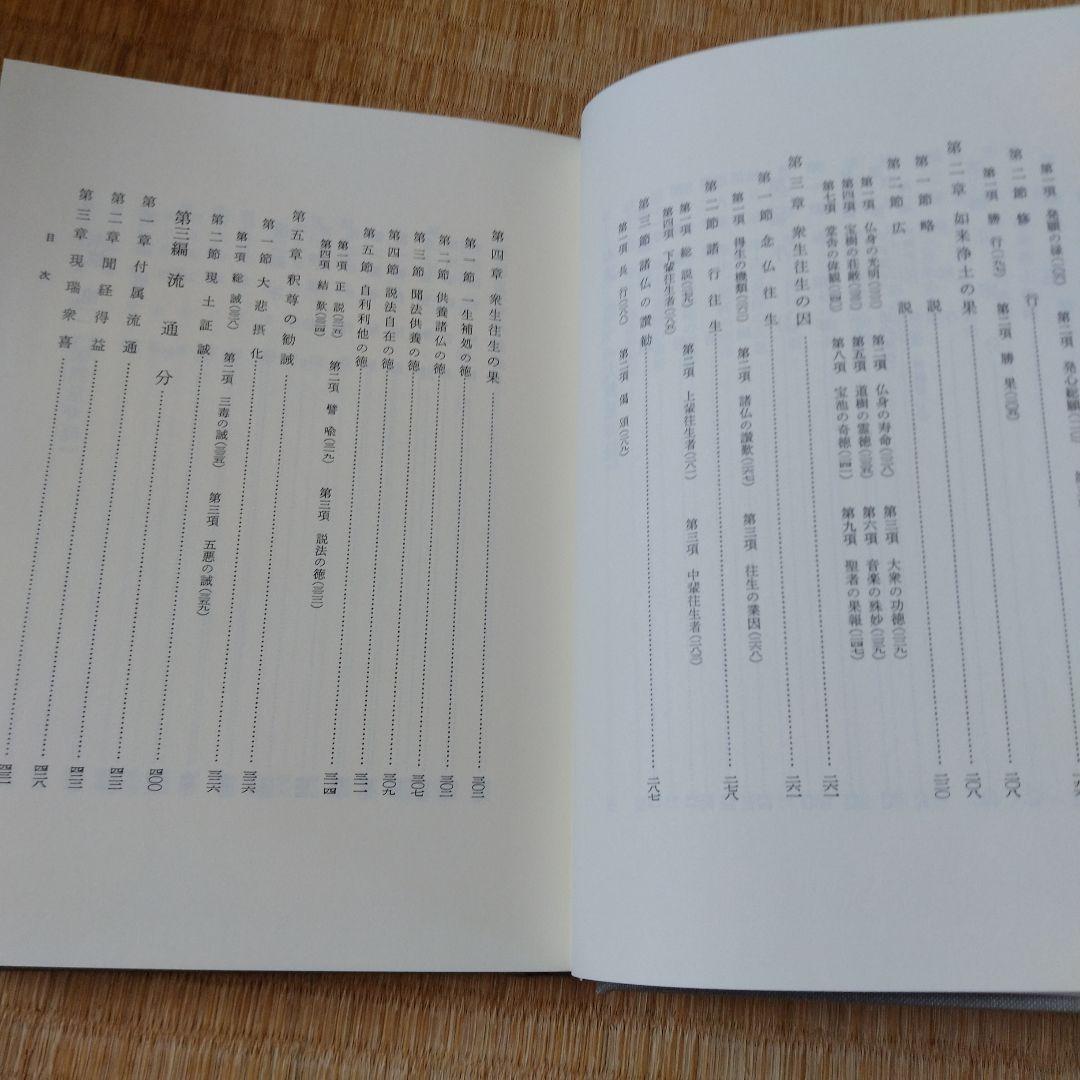 第一項 発願の縁
第二項 発心総願
第二節 修行
二〇八
第一項 勝行
第二項 勝果
第二章 如来浄土の果
二〇八
第一節 略説
二二〇
第二節 広説
第一項 仏身の光明
第二項 仏身の寿命
第三項 大衆の功徳
第四項 宝樹の荘厳
第五項 道樹の霊徳
第六項 音楽の殊妙
第七項 堂舎の偉観
第八項 宝池の奇徳
第九項 聖者の果報(二四七)
第三章 衆生往生の因
二六一
第一節 念仏往生
二六一
第一項 得生の機類
第二項 諸仏の讃歎(二六七)
第三項 往生の業因(二六八)
第二節 諸行往生
二七八
第一項 総説(二七九)
第二項 上輩往生者(二八一)
第三項 中輩往生者
第四項 下輩往生者
第三節 諸仏の讃勧
二八七
第一項 長行
第二項 偈頌(二八九)
第四章 衆生往生の果
三〇二
第一節 一生補処の徳
三〇二
第二節 供養諸仏の徳
三〇七
第三節 聞法供養の徳
三〇九
第四節 説法自在の徳
三一一
第五節 自利利他の徳
三一四
第一項 正説(三一五)
第二項 譬喩(三一九)
第三項 説法の徳
第四項 結歎
第五章 釈尊の勧誡
三二六
第一節 大悲摂化
三二六
第一項 総誡
第二項 三毒の誡
第三項 五悪の誡
第二節 現土証誠
四〇〇
第三編 流通分
四二三
第一章 付属流通
四二三
第二章 聞経得益
四二八
第三章 現瑞衆喜
目次